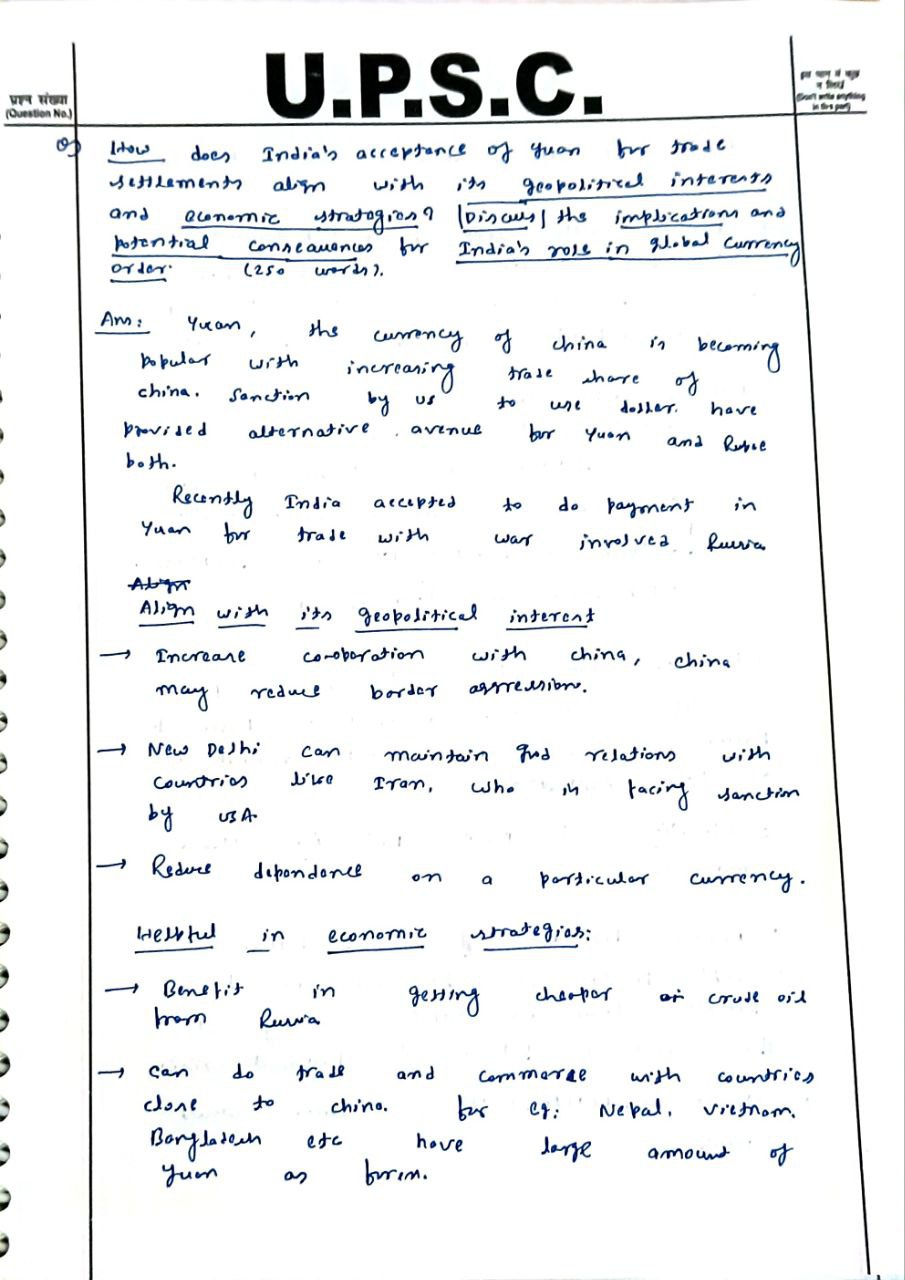 U.P.S.C.
प्रश्न संख्या
(Question No.)
(Don't write anything
in this part)
Q) How does India's acceptance of Yuan for trade
settlements align with its geopolitical interests
and economic strategies? |Discuss| the implications and
potential consequences for India's role in global currency
order. (250 words).
Ans: Yuan, the currency of china is becoming
popular with increasing trade share of
china. Sanction by US to use dollar. have
provided alternative avenue for Yuan and Rupee
both.
Recently India accepted to do payment in
Yuan for trade with war involved Russia
Align
Align with its geopolitical interest
→ Increase co-operation with china, china
may reduce border aggression.
→ New Delhi can maintain good relations with
countries like Iran, who is facing sanction
by USA.
→ Reduce dependence on a particular currency.
Helpful in economic strategies:
→ Benefit in getting cheaper crude oil
from Russia
→ Can do trade and commerce with countries
close to china. for eg: Nepal, Vietnam.
Bangladesh etc have large amount of
Yuan as forex.